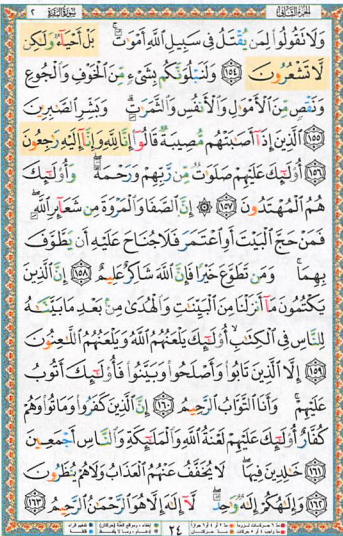 الجزء الثاني سورة البقرة ٢
وَلَا تَقُولُوا لِمَن يُقْتَلُ فِى سَبِيلِ اللَّهِ أَمْوَاتٌ ۚ بَلْ أَحْيَاءٌ وَلَكِن
لَّا تَشْعُرُونَ ﴿١٥٤﴾ وَلَنَبْلُوَنَّكُم بِشَىْءٍ مِّنَ الْخَوْفِ وَالْجُوعِ
وَنَقْصٍ مِّنَ الْأَمْوَالِ وَالْأَنفُسِ وَالثَّمَرَاتِ ۗ وَبَشِّرِ الصَّابِرِينَ
﴿١٥٥﴾ الَّذِينَ إِذَا أَصَابَتْهُم مُّصِيبَةٌ قَالُوا إِنَّا لِلَّهِ وَإِنَّا إِلَيْهِ رَاجِعُونَ
﴿١٥٦﴾ أُولَئِكَ عَلَيْهِمْ صَلَوَاتٌ مِّن رَّبِّهِمْ وَرَحْمَةٌ ۖ وَأُولَئِكَ
هُمُ الْمُهْتَدُونَ ﴿١٥٧﴾ ۞ إِنَّ الصَّفَا وَالْمَرْوَةَ مِن شَعَائِرِ اللَّهِ ۖ
فَمَنْ حَجَّ الْبَيْتَ أَوِ اعْتَمَرَ فَلَا جُنَاحَ عَلَيْهِ أَن يَطَّوَّفَ
بِهِمَا ۚ وَمَن تَطَوَّعَ خَيْرًا فَإِنَّ اللَّهَ شَاكِرٌ عَلِيمٌ ﴿١٥٨﴾ إِنَّ الَّذِينَ
يَكْتُمُونَ مَا أَنزَلْنَا مِنَ الْبَيِّنَاتِ وَالْهُدَى مِن بَعْدِ مَا بَيَّنَّاهُ
لِلنَّاسِ فِى الْكِتَابِ ۙ أُولَئِكَ يَلْعَنُهُمُ اللَّهُ وَيَلْعَنُهُمُ اللَّاعِنُونَ
﴿١٥٩﴾ إِلَّا الَّذِينَ تَابُوا وَأَصْلَحُوا وَبَيَّنُوا فَأُولَئِكَ أَتُوبُ
عَلَيْهِمْ ۚ وَأَنَا التَّوَّابُ الرَّحِيمُ ﴿١٦٠﴾ إِنَّ الَّذِينَ كَفَرُوا وَمَاتُوا وَهُمْ
كُفَّارٌ أُولَئِكَ عَلَيْهِمْ لَعْنَةُ اللَّهِ وَالْمَلَائِكَةِ وَالنَّاسِ أَجْمَعِينَ
﴿١٦١﴾ خَالِدِينَ فِيهَا ۖ لَا يُخَفَّفُ عَنْهُمُ الْعَذَابُ وَلَا هُمْ يُنظَرُونَ
﴿١٦٢﴾ وَإِلَهُكُمْ إِلَهٌ وَاحِدٌ ۖ لَّا إِلَهَ إِلَّا هُوَ الرَّحْمَنُ الرَّحِيمُ ﴿١٦٣﴾
٢٤